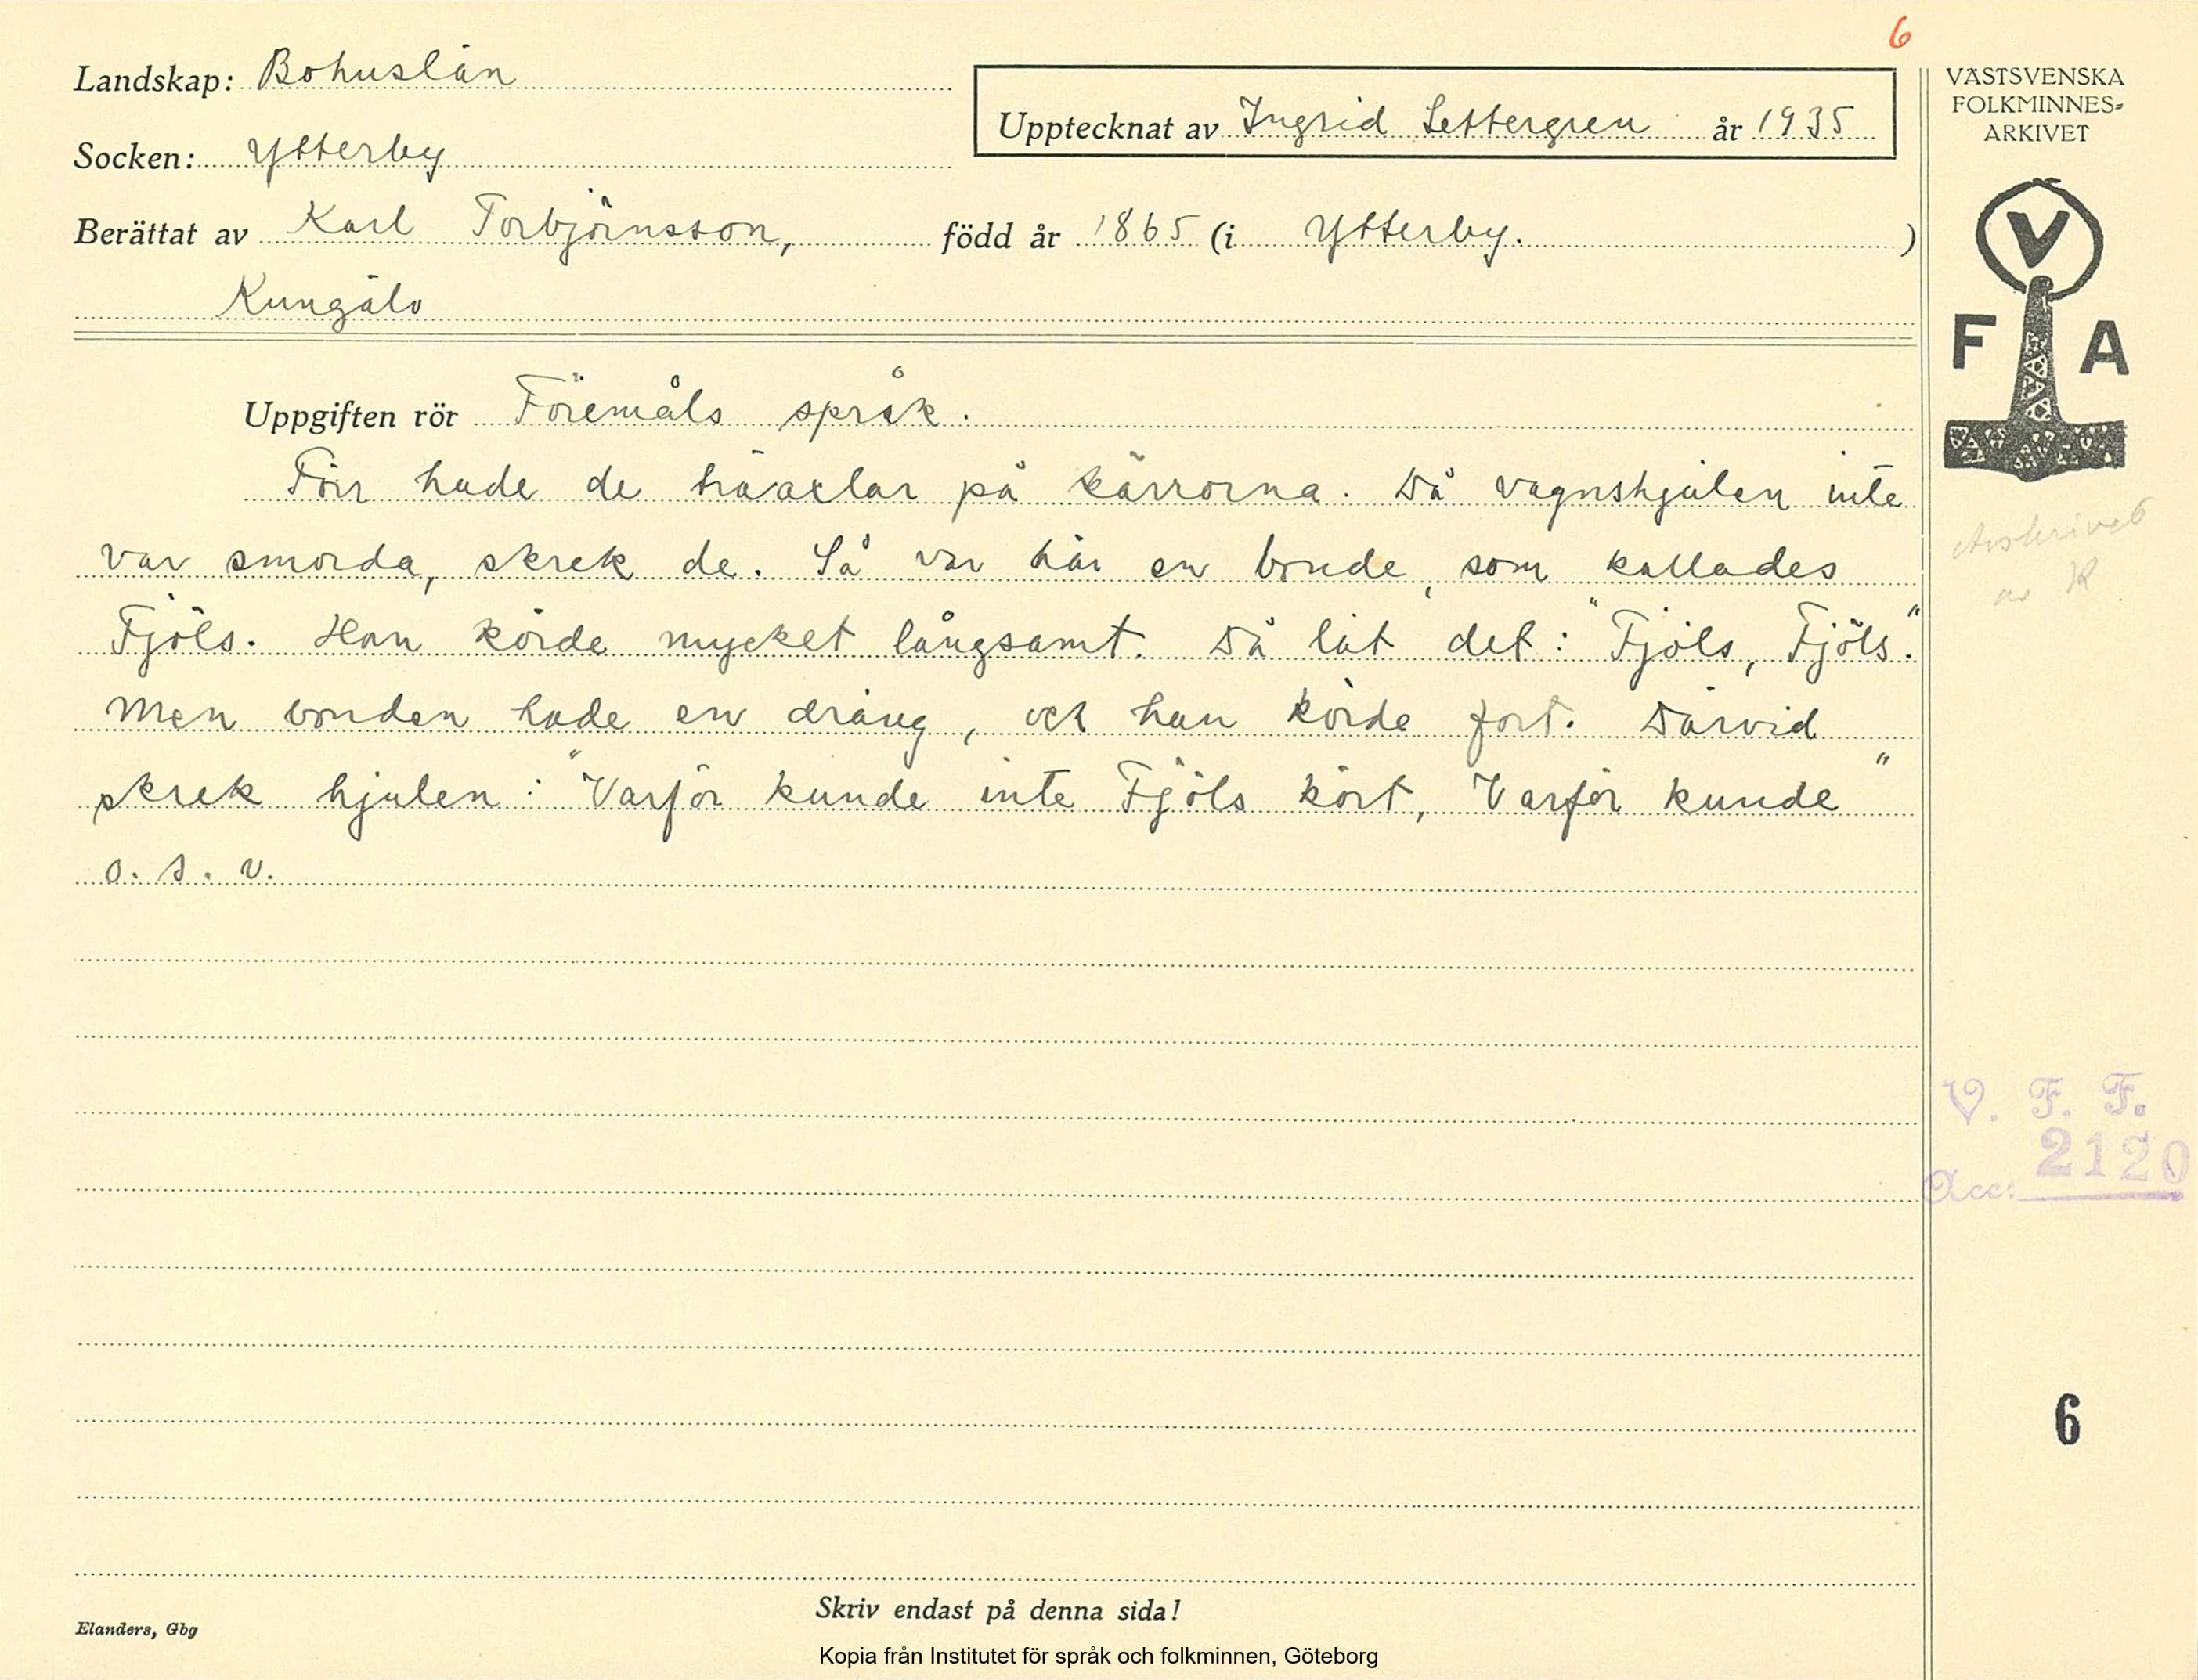 6
Landskap: Bohuslän
Upptecknat av Ingrid Settergren år 1935
Socken: Ytterby
Berättat av Karl Torbjörnsson, född år 1865 (i Ytterby. )
Kungälv
VÄSTSVENSKA
FOLKMINNES-
ARKIVET
V
F A
Uppgiften rör Föremåls språk.
Förr hade de träaxlar på kärrorna. Då vagnshjulen inte
var smorda, skrek de. Så var här en bonde, som kallades
Fjöls. Han körde mycket långsamt. Då lät det: "Fjöls, Fjöls".
Men bonden hade en dräng, och han körde fort. Därvid
skrek hjulen: "Varför kunde inte Fjöls kört, Varför kunde"
o. s. v.
Avskrivet
av K
V. F. F.
Acc: 2120
6
Skriv endast på denna sida!
Elanders, Gbg
Kopia från Institutet för språk och folkminnen, Göteborg